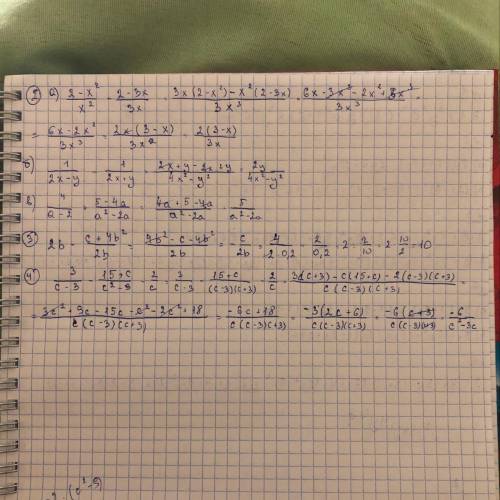 ② а) (2-x²)/x² - (2-3x)/3x = (3x(2-x²)-x²(2-3x))/3x³ = (6x-3x³-2x²+3x³)/3x³ =
= (6x-2x²)/3x³ = (2x(3-x))/3x³ = (2(3-x))/3x
б) 1/(2x-y) - 1/(2x+y) = (2x+y-2x+y)/(4x²-y²) = 2y/(4x²-y²)
в) 4/(a-2) + (5-4a)/(a²-2a) = (4a+5-4a)/(a²-2a) = 5/(a²-2a)
③ 2b - (c+4b²)/2b = (4b²-c-4b²)/2b = -c/2b = 4/(2·0,2) = 2/0,2 = 2:2/10 = 2·10/2 = 10
④ 3/(c-3) - (15+c)/(c²-9) - 2/c = 3/(c-3) - (15+c)/((c-3)(c+3)) - 2/c = (3c(c+3)-c(15+c)-2(c-3)(c+3))/(c(c-3)(c+3)) =
= (3c²+9c-15c-c²-2c²+18)/(c(c-3)(c+3)) = (-6c+18)/(c(c-3)(c+3)) = (-3(2c+6))/(c(c-3)(c+3)) = (-6(c+3))/(c(c-3)(c+3)) = -6/(c²-3c)